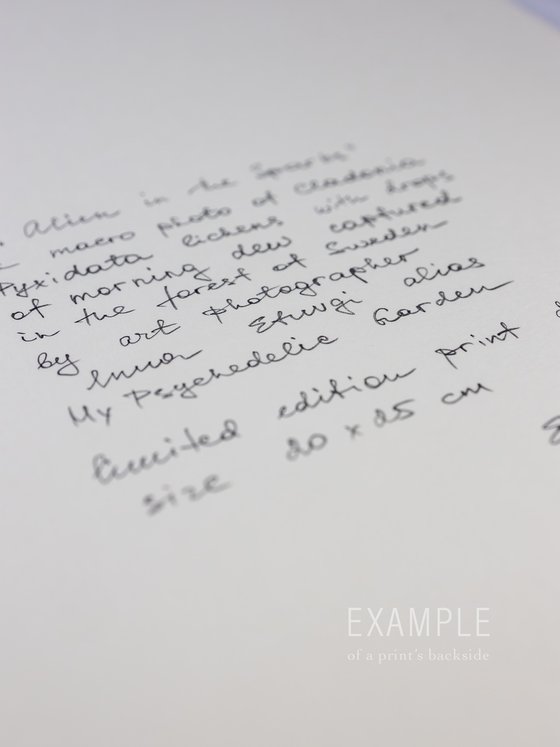 "Alien in the Sparks"
macro photo of Cladonia
Pyxidata lichens with drops
of morning dew captured
in the forest of Sweden
by art photographer
Inna Etuvgi alias
My Psychedelic Garden
limited edition print
size 20 x 25 cm
EXAMPLE
of a print's backside